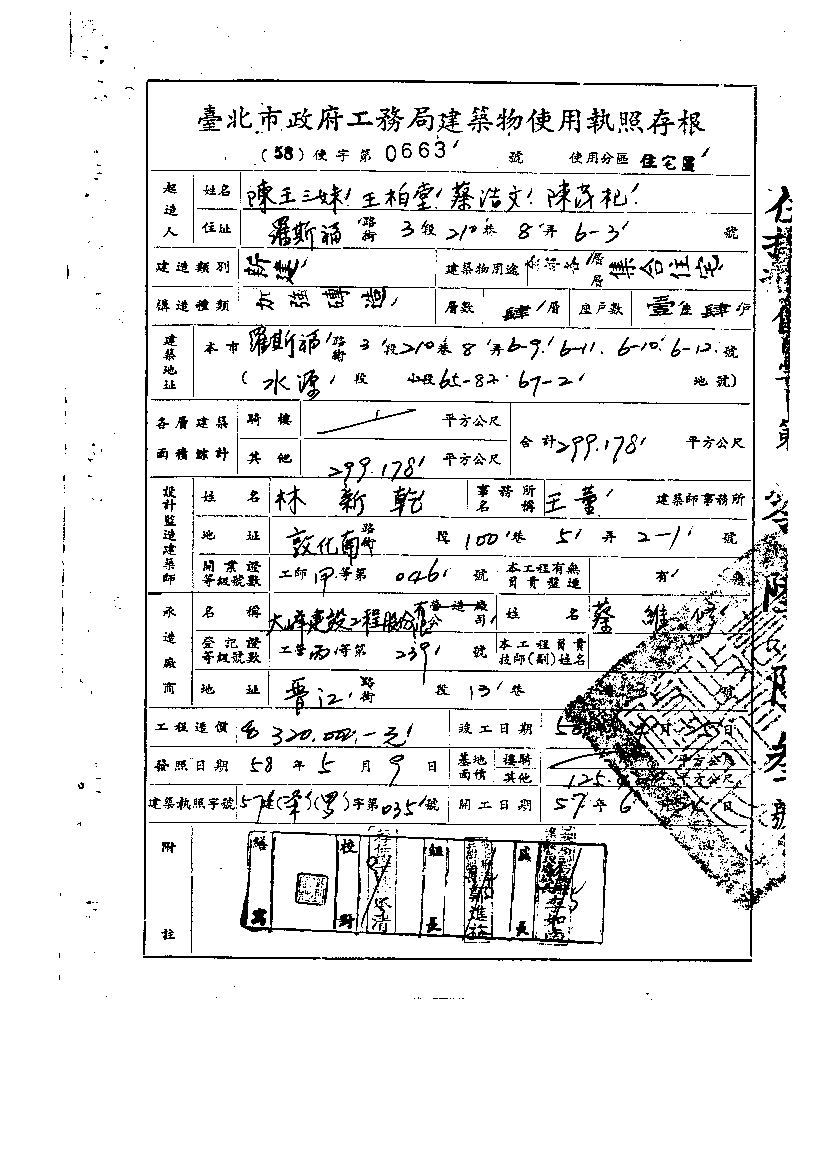 臺北市政府工務局建築物使用執照存根
(58)使字第0663號 使用分區 住宅區
起造人 姓名 陳王三妹 王柏堂 蔡浩文 陳
住址 羅斯福路街 3段210巷8弄6-3號
建造類別 新建 建築物用途 層層 集合住宅
構造種類 加強磚造 層數 肆層 座戶數 壹座肆戶
建築地址 本市羅斯福路街3段210巷8弄6-9 6-11 6-10 6-12號
(水源段 小段65-82 67-2地號)
各層建築面積總計 騎樓 平方公尺 合計299.178平方公尺
其他 299.178平方公尺
設計監造建築師 姓名 林新乾 事務所名稱 王董 建築師事務所
地址 敦化南路街 段100巷5弄2-1號
開業證等級號數 工師甲等第046號 本工程有無負責監造 有
承造廠商 名稱 建設工程股份有限公司 營造廠 姓名 蔡維修
登記證等級號數 工營丙等第239號 本工程負責技師(副)姓名
地址 晉江路街 段13巷 號
工程造價 320,000.-元 竣工日期 58 月 日
發照日期 58年5月9日 基地面積 樓騎 平方公尺
其他 125. 平方公尺
建築執照字號 57建()()字第035號 開工日期 57年6月 日
附註
繕寫 校對 組長 處長